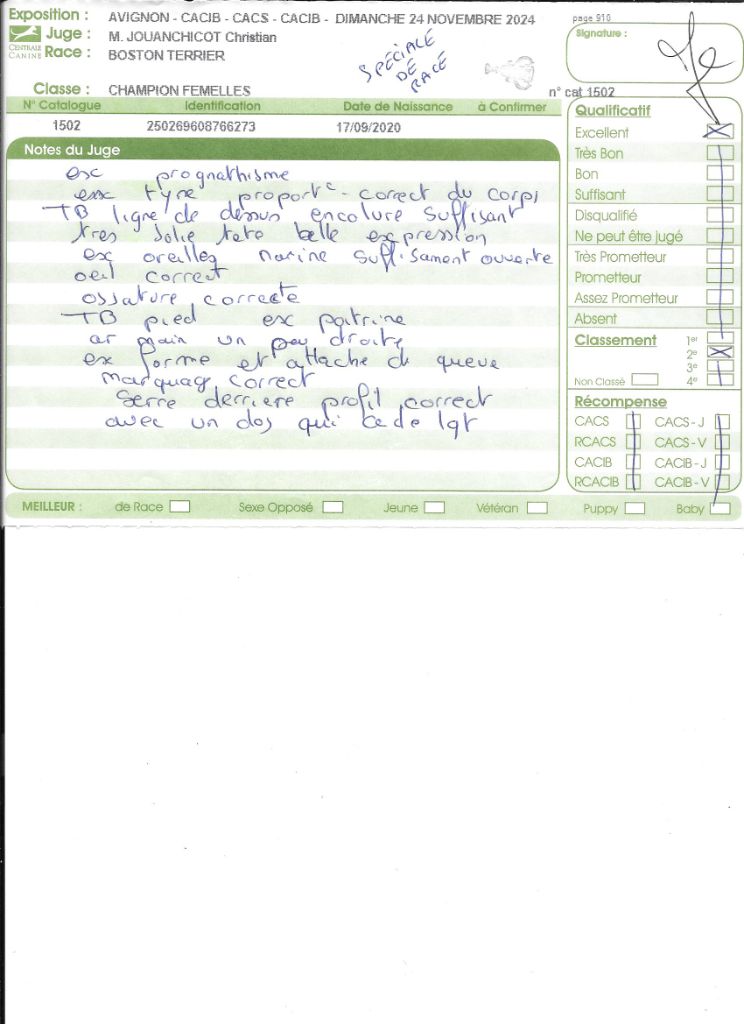 Exposition : AVIGNON - CACIB - CACS - CACIB - DIMANCHE 24 NOVEMBRE 2024
page 910
Juge : M. JOUANCHICOT Christian
CENTRALE CANINE
Race : BOSTON TERRIER
SPÉCIALE
DE
RACE
Signature :
Classe : CHAMPION FEMELLES
n° cat 1502
N° Catalogue Identification Date de Naissance à Confirmer
1502 250269608766273 17/09/2020
Notes du Juge
exc prognathisme
exc type proport° - correct du corps
TB ligne de dessus encolure suffisant
tres jolie tete belle expression
ex oreilles narine suffisament ouverte
oeil correct
ossature correcte
TB pied ex poitrine
ar main un peu droite
ex forme et attache de queue
marquage correct
serre derriere profil correct
avec un dos qui cede lgt
Qualificatif
Excellent
Très Bon
Bon
Suffisant
Disqualifié
Ne peut être jugé
Très Prometteur
Prometteur
Assez Prometteur
Absent
Classement 1er
2e
3e
Non Classé 4e
Récompense
CACS CACS - J
RCACS CACS - V
CACIB CACIB - J
RCACIB CACIB - V
MEILLEUR : de Race Sexe Opposé Jeune Vétéran Puppy Baby